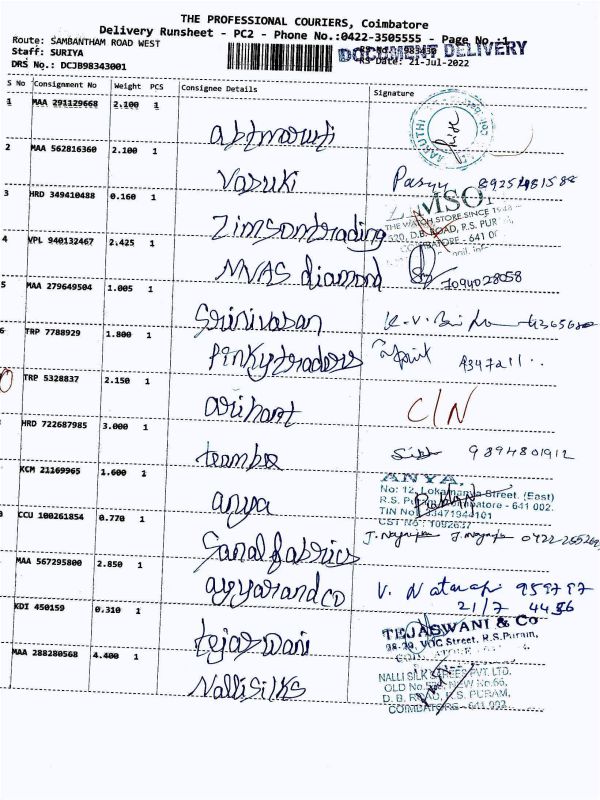 THE PROFESSIONAL COURIERS, Coimbatore
Delivery Runsheet - PC2 - Phone No.:0422-3505555 - Page No.:1
Route: SAMBANTHAM ROAD WEST
DOCUMENT DELIVERY
Staff: SURIYA
RS Date: 21-Jul-2022
DRS No.: DCJB98343001
S No Consignment No Weight PCS Consignee Details Signature
1 MAA 291129668 2.100 1
2 MAA 562816360 2.100 1
Vasuki
3 HRD 349410488 0.160 1
MSO
THE WATCH STORE SINCE 1948
D.B. ROAD, R.S. PUR
Zimsontrading
4 VPL 940132467 2.425 1
MVAS diamond 7094028058
5 MAA 279649504 1.005 1
Srinivasan
6 TRP 7788929 1.800 1
Pinkytraders
TRP 5328837 2.150 1
arihant C/N
HRD 722687985 3.000 1
9894801912
KCM 21169965 1.600 1
ANYA
No: 12, Lokamanya Street. (East)
R.S. Puram, Coimbatore - 641 002.
anya
CCU 100261854 0.770 1
Sanalfabrics
MAA 567295800 2.850 1
ayyarandco V. 959797
21/7 4456
KDI 450159 0.310 1
TEJASWANI & Co
VOC Street, R.S.Puram,
tejaswani
MAA 288280568 4.400 1
NALLI SILK SAREES PVT. LTD.
OLD No. NEW No.66,
D. B. ROAD, R.S. PURAM,
COIMBATORE - 641 002
Nallisilks